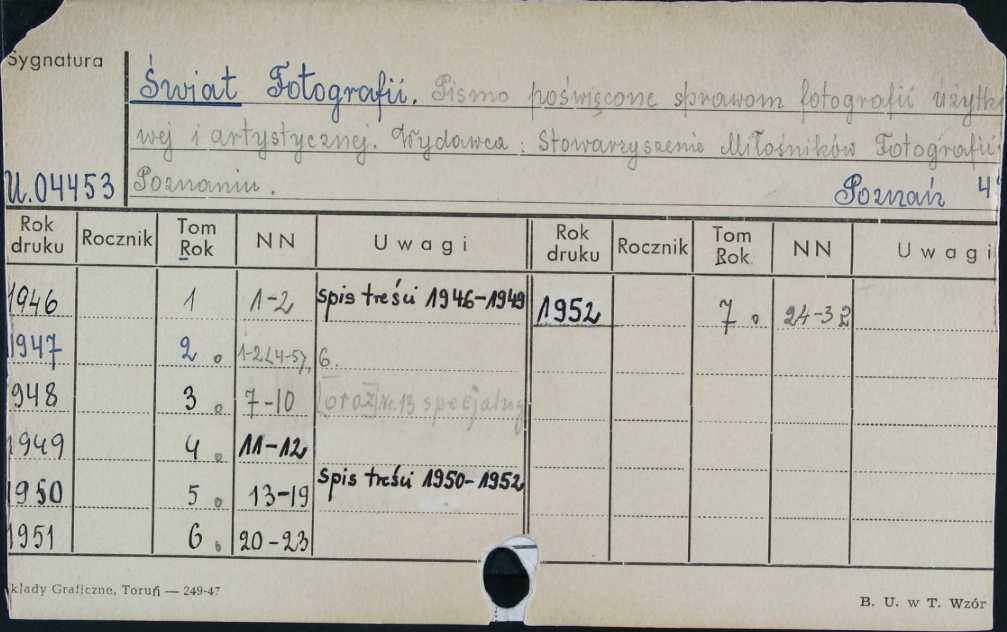 Sygnatura
Świat Fotografii. Pismo poświęcone sprawom fotografii użytko
wej i artystycznej. Wydawca: Stowarzyszenie Miłośników Fotografii
U.04453 Poznaniu. Poznań 4
Rok druku Rocznik Tom Rok NN Uwagi Rok druku Rocznik Tom Rok NN Uwagi
1946 1 1-2 spis treści 1946-1949 1952 7 24-32
1947 2 1-2(4-5), 6.
948 3 7-10 [oraz] Nr. 13 specjalny
1949 4 11-12
1950 5 13-19 spis treści 1950-1952
1951 6 20-23
kłady Graficzne, Toruń — 249-47
B. U. w T. Wzór